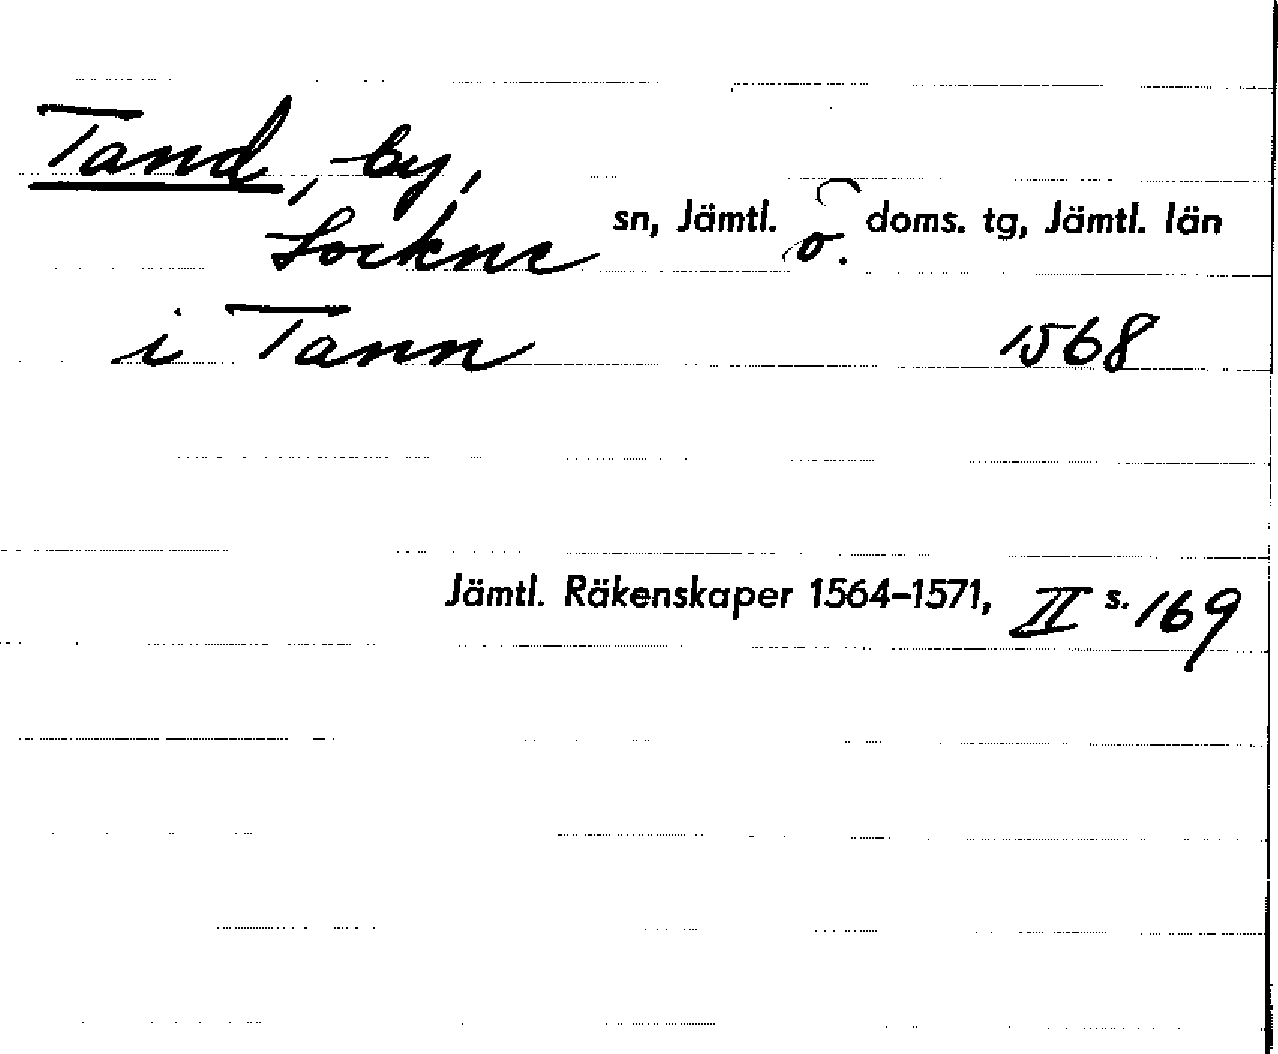 Tand, by,
Lockne sn, Jämtl. ö. doms. tg, Jämtl. län
i Tann 1568
Jämtl. Räkenskaper 1564-1571, II s. 169